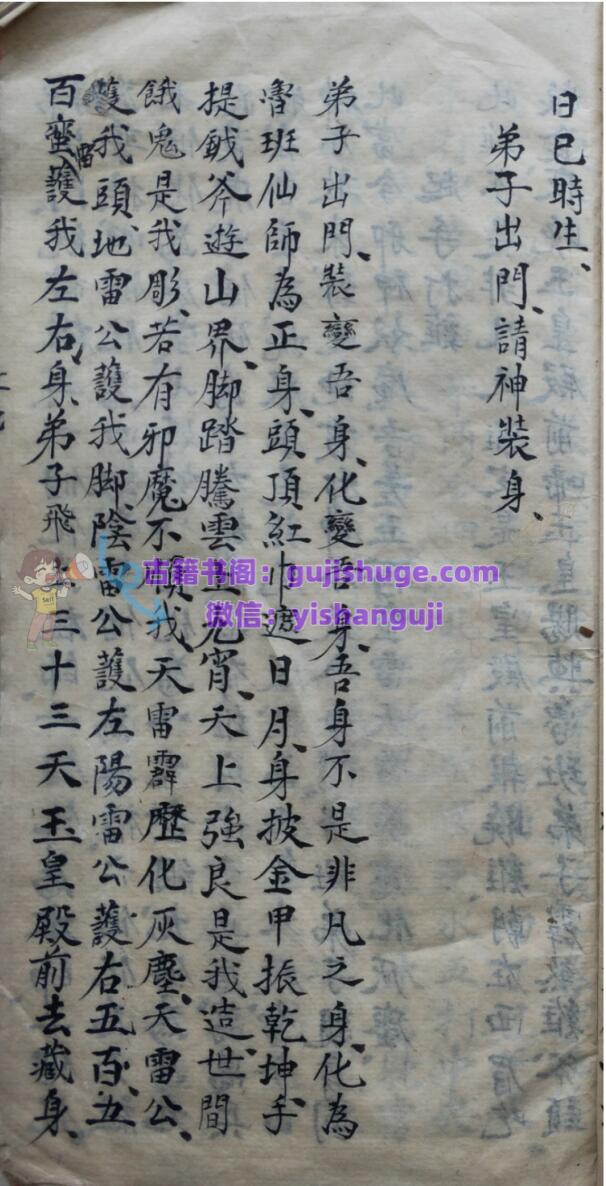 日巳時生、
弟子出門、請神裝身、
弟子出門、裝變吾身、化變吾身、吾身不是非凡之身、化為
魯班仙師為正身、頭頂紅巾遮日月、身披金甲振乾坤、手
提鉞斧遊山界、脚踏騰雲上九宵、天上強良是我造、世間
餓鬼是我彫、若有邪魔不順我、天雷霹靂化灰塵、天雷公、
護我頭、地雷公護我脚、陰雷公護左陽雷公護右五百、五
百蠻雷護我左右身、弟子飛 三十三天玉皇殿前去藏身、
古籍书阁：gujishuge.com
微信：yishanguji